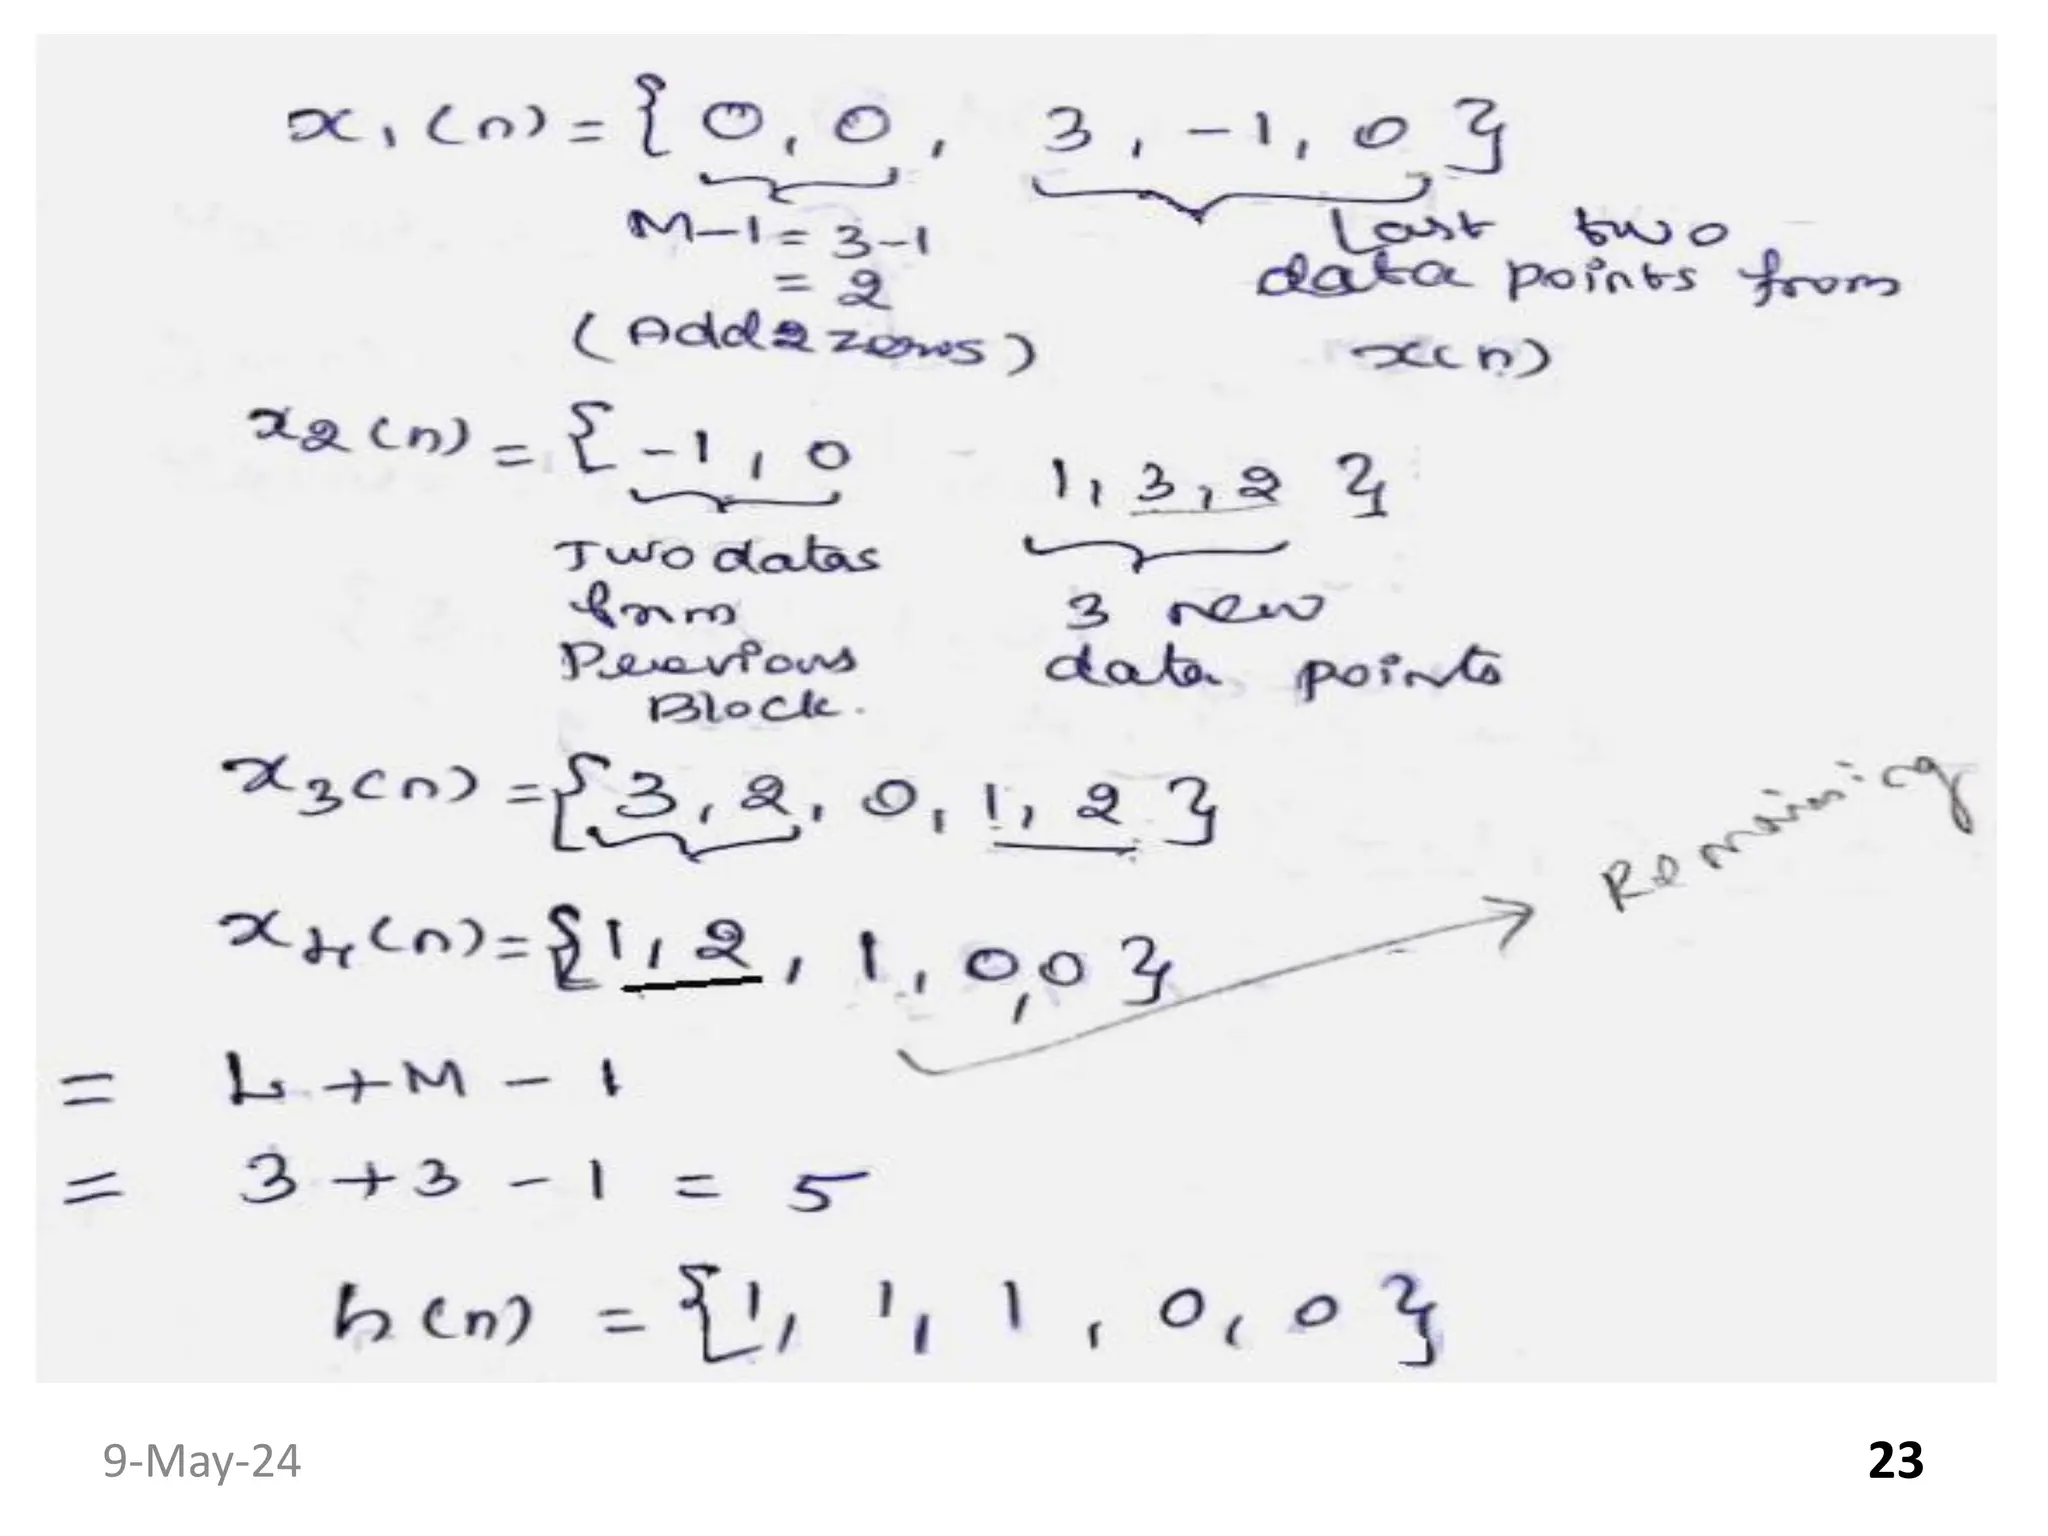 x1(n) = { 0, 0, 3, -1, 0 }
M-1 = 3-1
= 2
(Add 2 zeros)
Last two
data points from
x(n)
x2(n) = { -1, 0 1, 3, 2 }
Two datas
from
Previous
Block.
3 new
data points
x3(n) = { 3, 2, 0, 1, 2 }
x4(n) = { 1, 2, 1, 0, 0 }
Remaining
= L + M - 1
= 3 + 3 - 1 = 5
h(n) = { 1, 1, 1, 0, 0 }
9-May-24
23